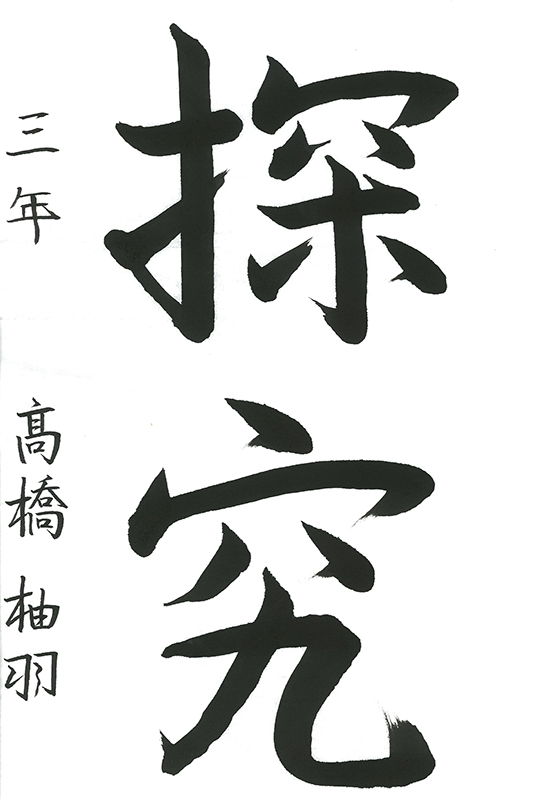 探究
三年 髙橋 柚羽